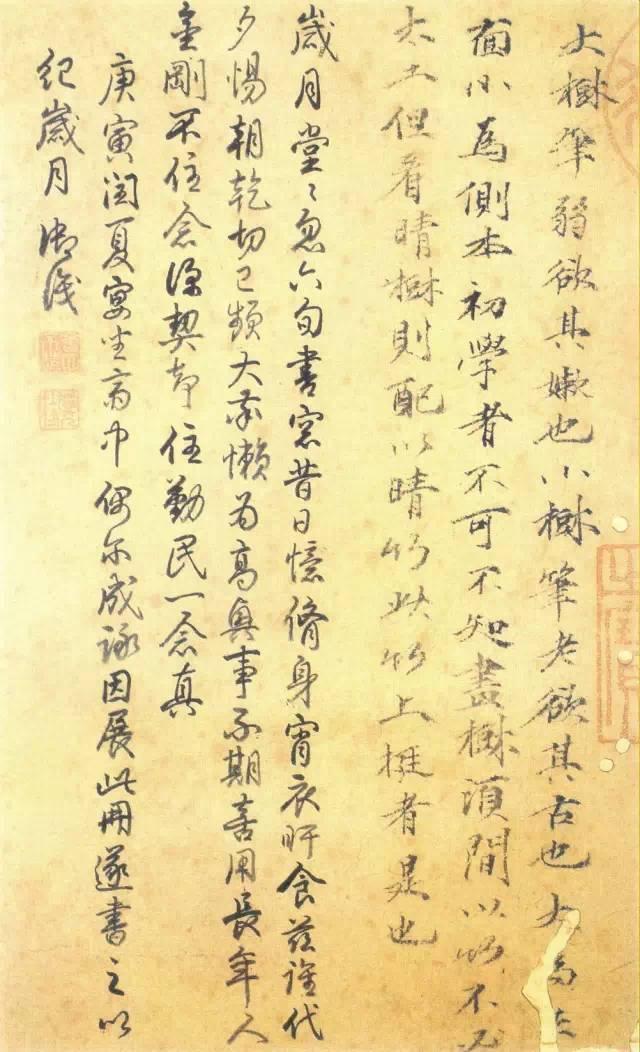 大樹筆弱欲其嫩也小樹筆老欲其古也大為正
面小為側本初學者不可不知畫樹須間以竹不必
太工但看晴樹則配以晴竹狀竹上挺者是也
歲月堂〻忽六旬書窓昔日憶脩身宵衣旰食茲誰代
夕惕朝乾切己頻大懶為高興事不期喜用長年人
金剛不住念深契却住勤民一念真
庚寅閏夏宴坐斋中偶尓成詠因展此冊遂書之以
紀歲月御識